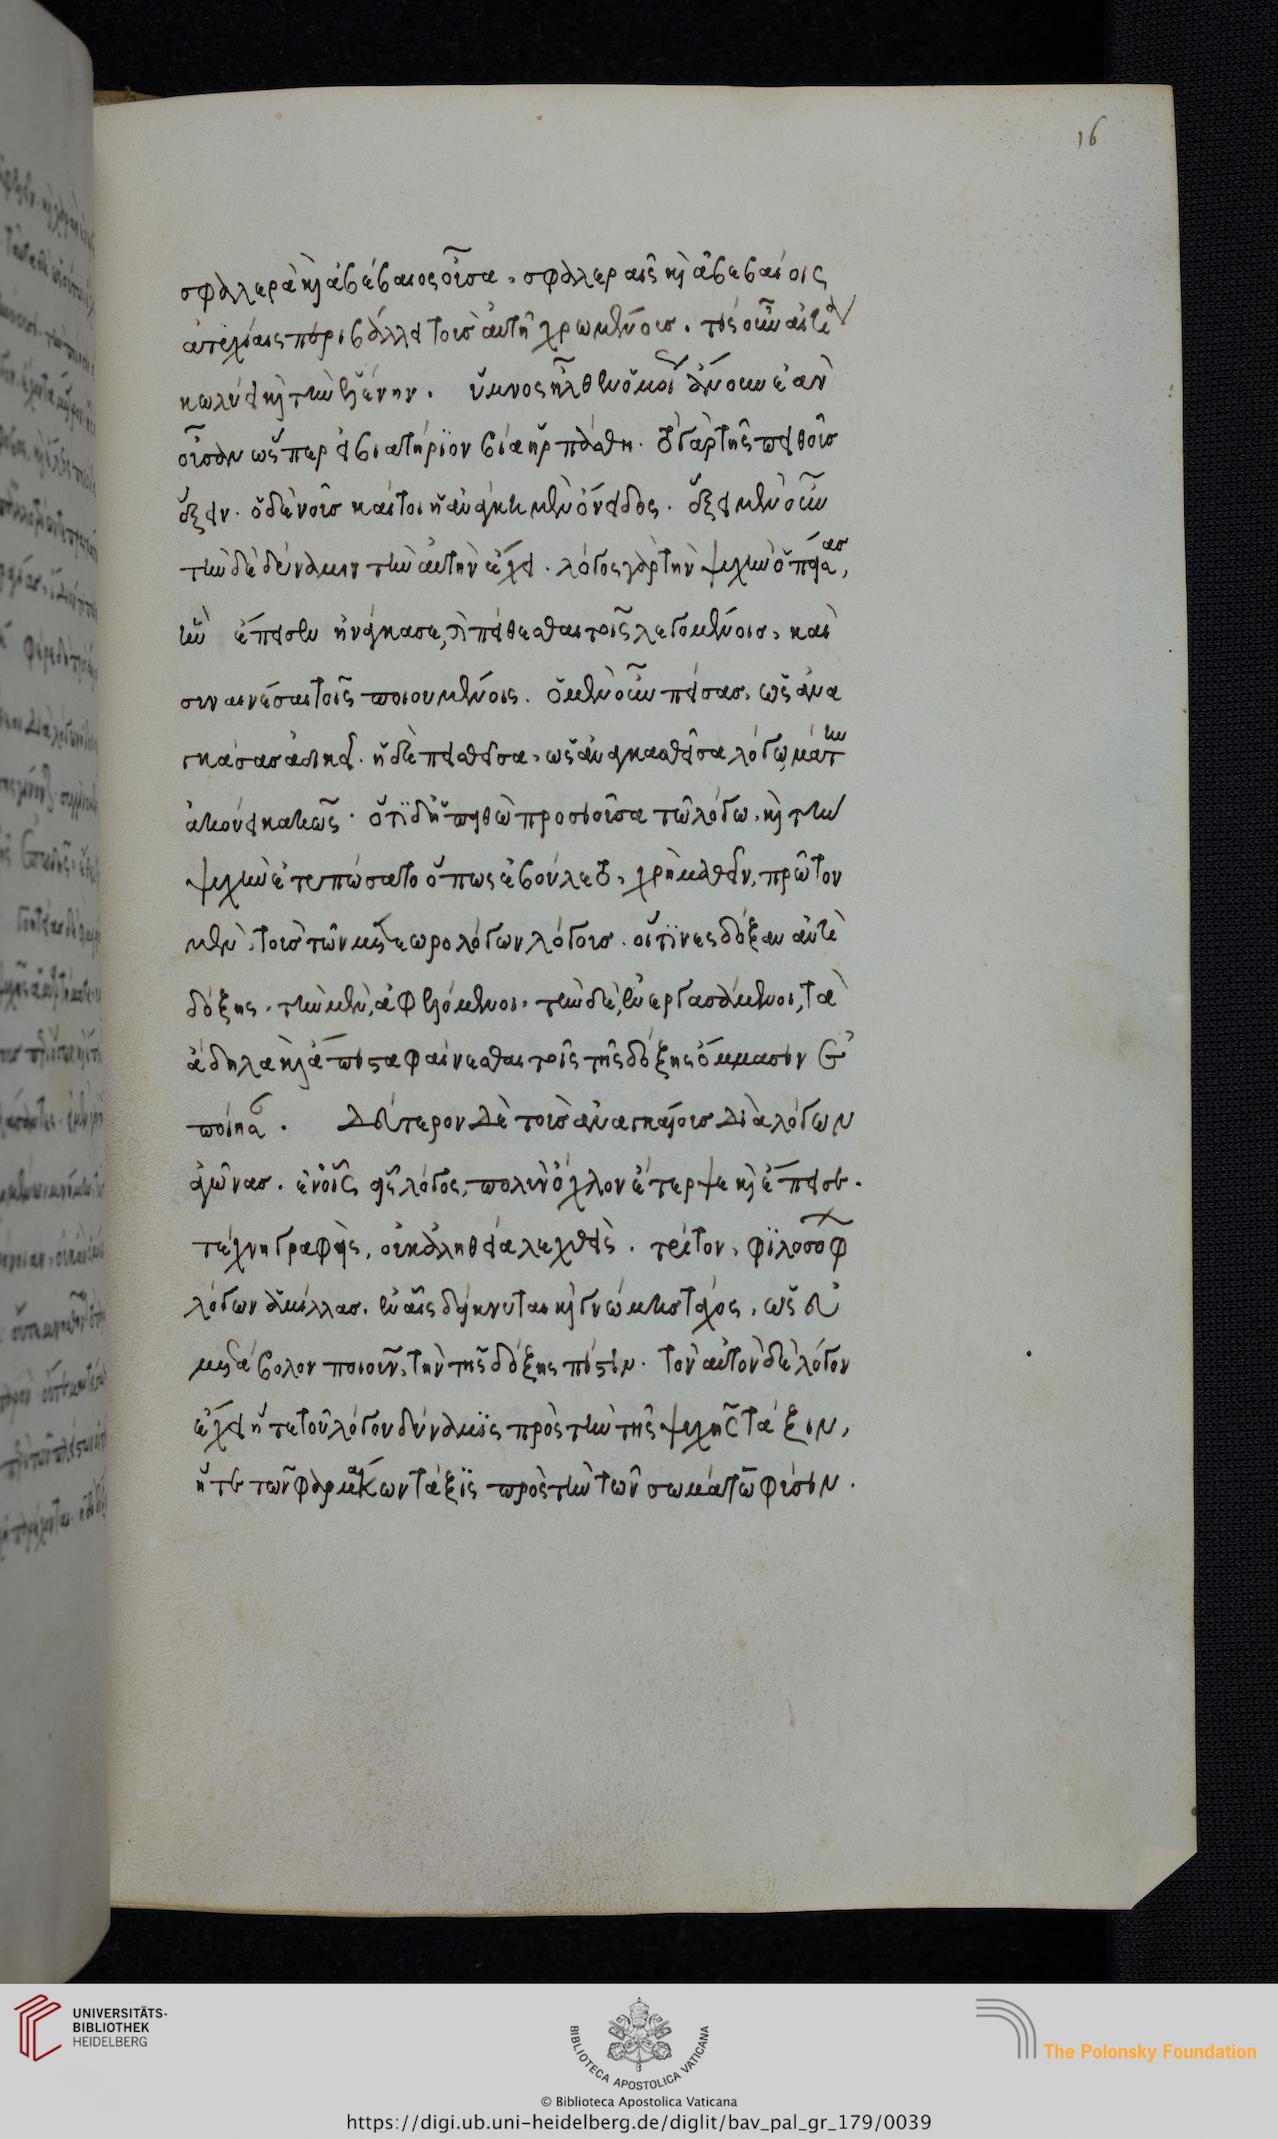 16
σφαλερὰ καὶ ἀβέβαιος οὖσα, σφαλεραῖς καὶ ἀβεβαίοις
ἀτυχίαις περιβάλλει τοὺς αὐτῇ χρωμένους. τίς οὖν αἰτία
κωλύει καὶ τὴν ἑλένην. ὕμνος ἦλθεν ὁμοίως ἂν οὐ νέαν
οὖσαν ὥσπερ εἰ βιατήριον βίᾳ ἡρπάσθη. τὸ γὰρ τῆς πειθοῦς
ἕξειν. ὁ δὲ νοῦς καίτοι ἡ ἀνάγκη μὲν ὀνειδος. ἕξει μὲν οὖν
τὴν δὲ δύναμιν τὴν αὐτὴν ἔχει. λόγος γὰρ τὴν ψυχὴν ὁ πείσας,
ἣν ἔπεισεν ἠνάγκασε, καὶ πείθεσθαι τοῖς λεγομένοις, καὶ
συναινέσαι τοῖς ποιουμένοις. ὁ μὲν οὖν πείσας, ὡς ἀνα
γκάσας ἀδικεῖ. ἡ δὲ πεισθεῖσα, ὡς ἀναγκασθεῖσα λόγῳ, μάτην
ἀκούει κακῶς. ὅτι δὴ ἡ πειθὼ προσιοῦσα τῷ λόγῳ, καὶ τὴν
ψυχὴν ἐτυπώσατο ὅπως ἐβούλετο, χρὴ μαθεῖν, πρῶτον
μὲν, τοὺς τῶν μετεωρολόγων λόγους. οἵτινες δόξαν ἀντὶ
δόξης. τὴν μὲν, ἀφελόμενοι. τὴν δὲ, ἐνεργασάμενοι, τὰ
ἄδηλα καὶ ἄπιστα φαίνεσθαι τοῖς τῆς δόξης ὄμμασιν ἐ
ποίησαν. Δεύτερον δὲ τοὺς ἀναγκαίους διὰ λόγων
ἀγῶνας. ἐν οἷς εἷς λόγος, πολὺν ὄχλον ἔτερψε καὶ ἔπεισε.
τέχνῃ γραφεὶς, οὐκ ἀληθείᾳ λεχθεὶς. τρίτον, φιλοσόφων
λόγων ἁμίλλας. ἐν αἷς δείκνυται καὶ γνώμης τάχος, ὡς εὐ
μετάβολον ποιοῦν, τὴν τῆς δόξης πίστιν. τὸν αὐτὸν δὲ λόγον
ἔχει ἥ τε τοῦ λόγου δύναμις πρὸς τὴν τῆς ψυχῆς τάξιν,
ἥ τε τῶν φαρμάκων τάξις πρὸς τὴν τῶν σωμάτων φύσιν.
UNIVERSITÄTS-
BIBLIOTHEK
HEIDELBERG
BIBLIOTECA APOSTOLICA VATICANA
The Polonsky Foundation
© Biblioteca Apostolica Vaticana
https://digi.ub.uni-heidelberg.de/diglit/bav_pal_gr_179/0039